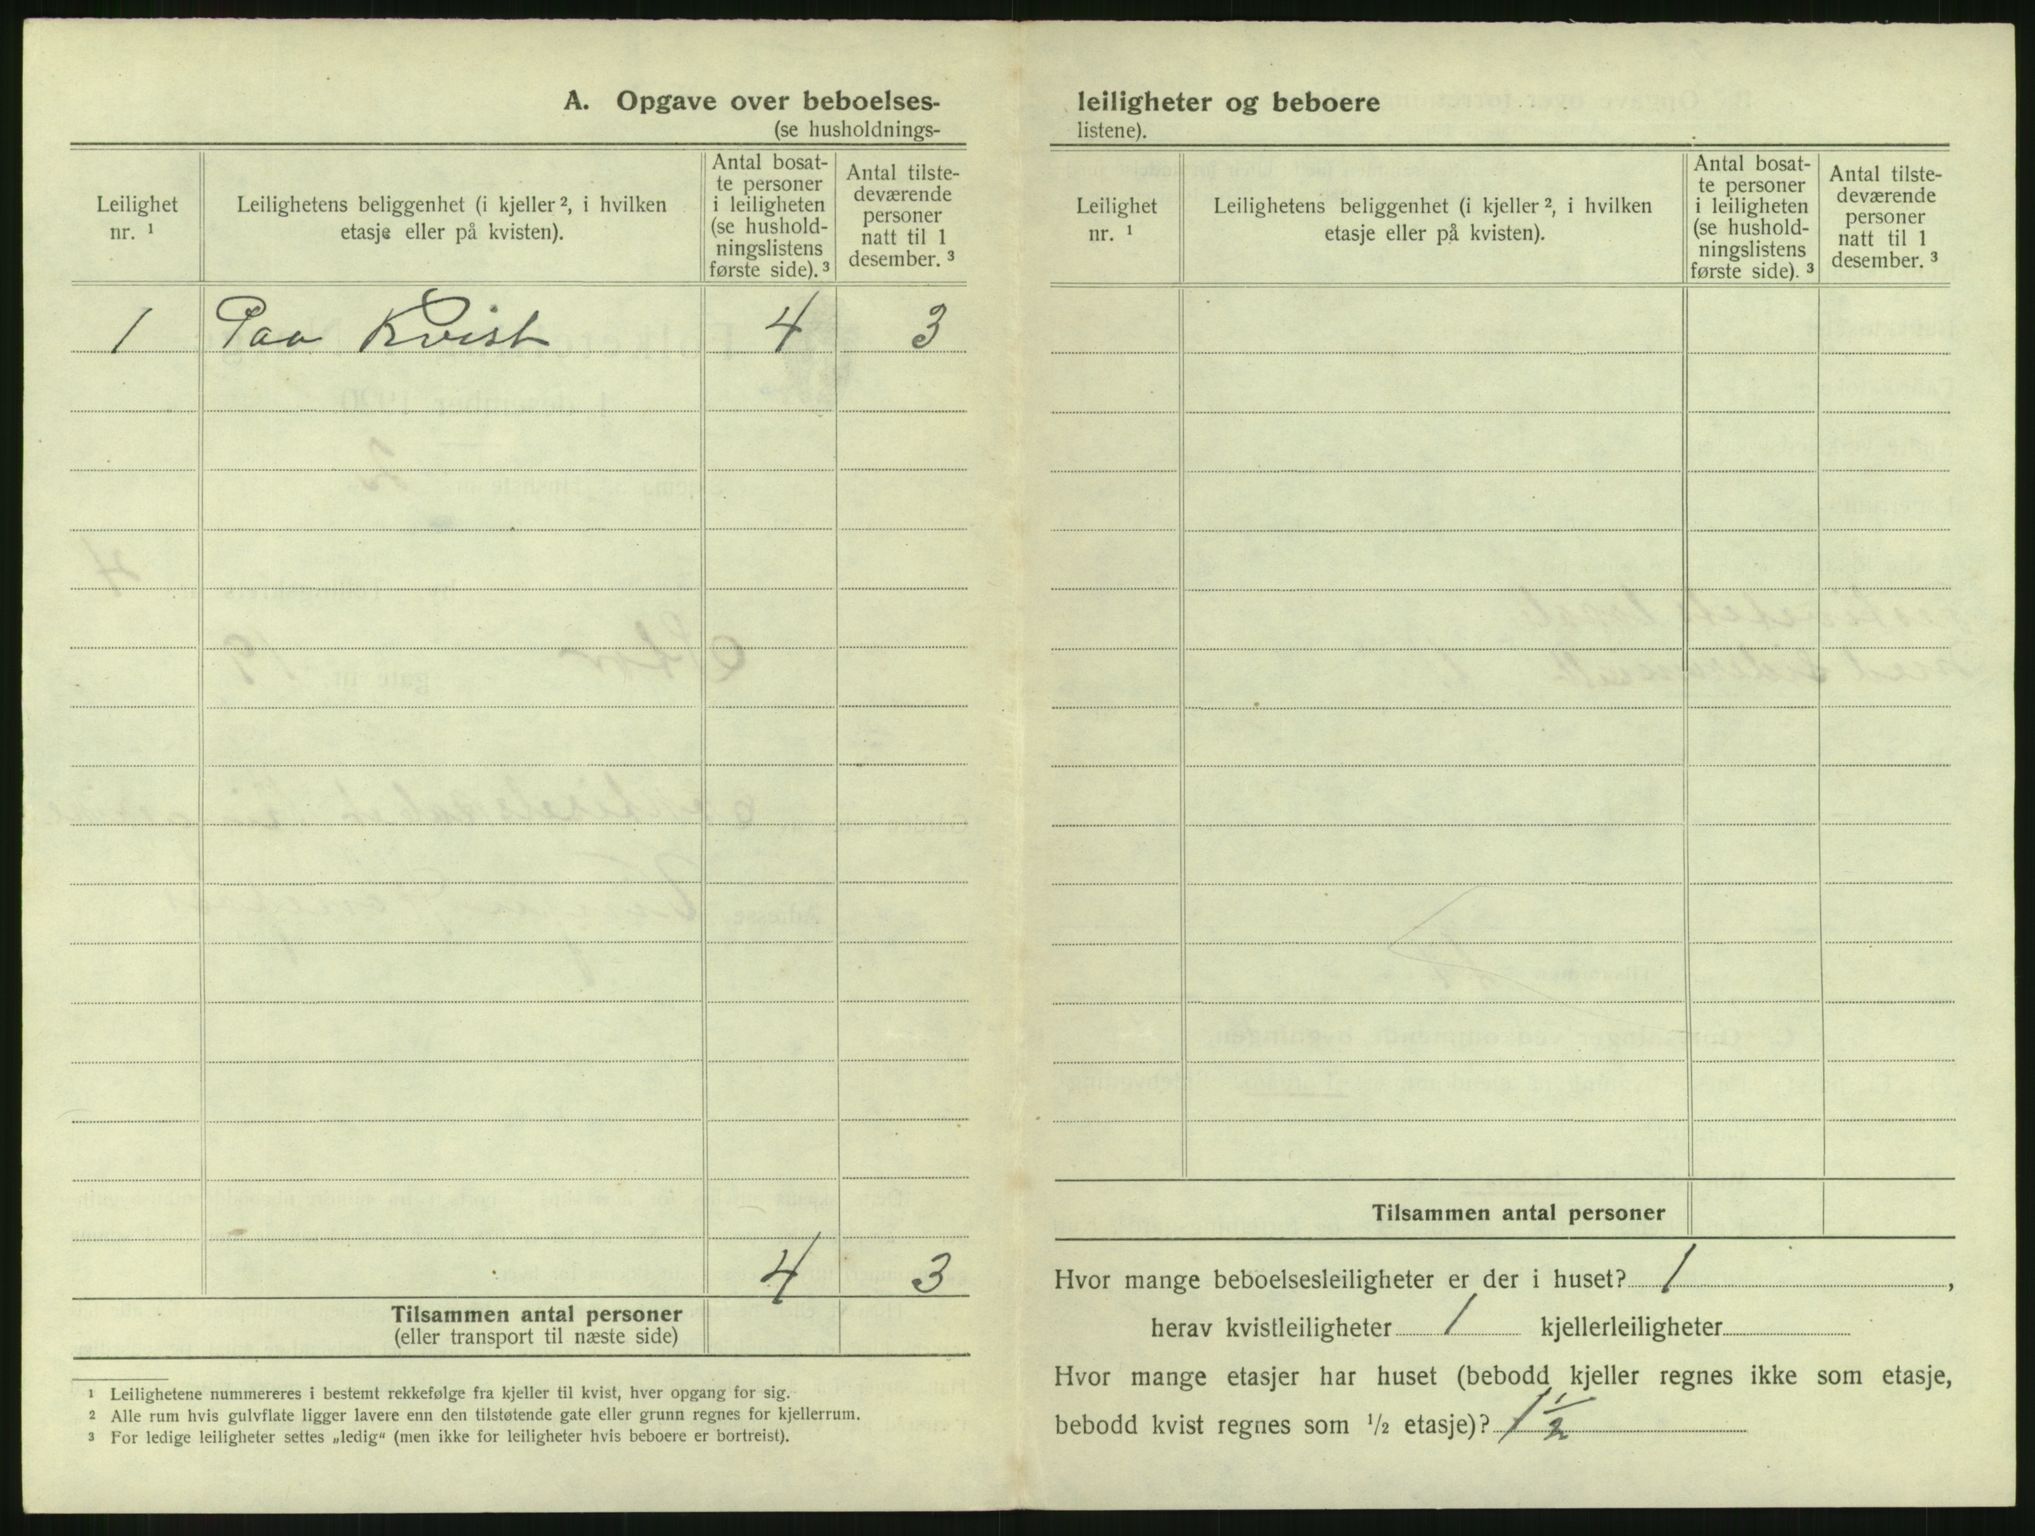 A. Opgave over beboelses-
(se husholdnings-
Leilighet nr. 1
Leilighetens beliggenhet (i kjeller ², i hvilken
etasje eller på kvisten).
Antal bosat-
te personer
i leiligheten
(se hushold-
ningslistens
første side). ³
Antal tilste-
deværende
personer
natt til 1
desember. ³
1 Paa Kvist 4 3
4 3
Tilsammen antal personer
(eller transport til næste side)
¹ Leilighetene nummereres i bestemt rekkefølge fra kjeller til kvist, hver opgang for sig.
² Alle rum hvis gulvflate ligger lavere enn den tilstøtende gate eller grunn regnes for kjellerrum.
³ For ledige leiligheter settes „ledig“ (men ikke for leiligheter hvis beboere er bortreist).
leiligheter og beboere
listene).
Leilighet
nr. ¹
Leilighetens beliggenhet (i kjeller ², i hvilken
etasje eller på kvisten).
Antal bosat-
te personer
i leiligheten
(se hushold-
ningslistens
første side). ³
Antal tilste-
deværende
personer
natt til 1
desember. ³
Tilsammen antal personer
Hvor mange beboelsesleiligheter er der i huset? 1 ,
herav kvistleiligheter 1 kjellerleiligheter
Hvor mange etasjer har huset (bebodd kjeller regnes ikke som etasje,
bebodd kvist regnes som ½ etasje)? 1 ½